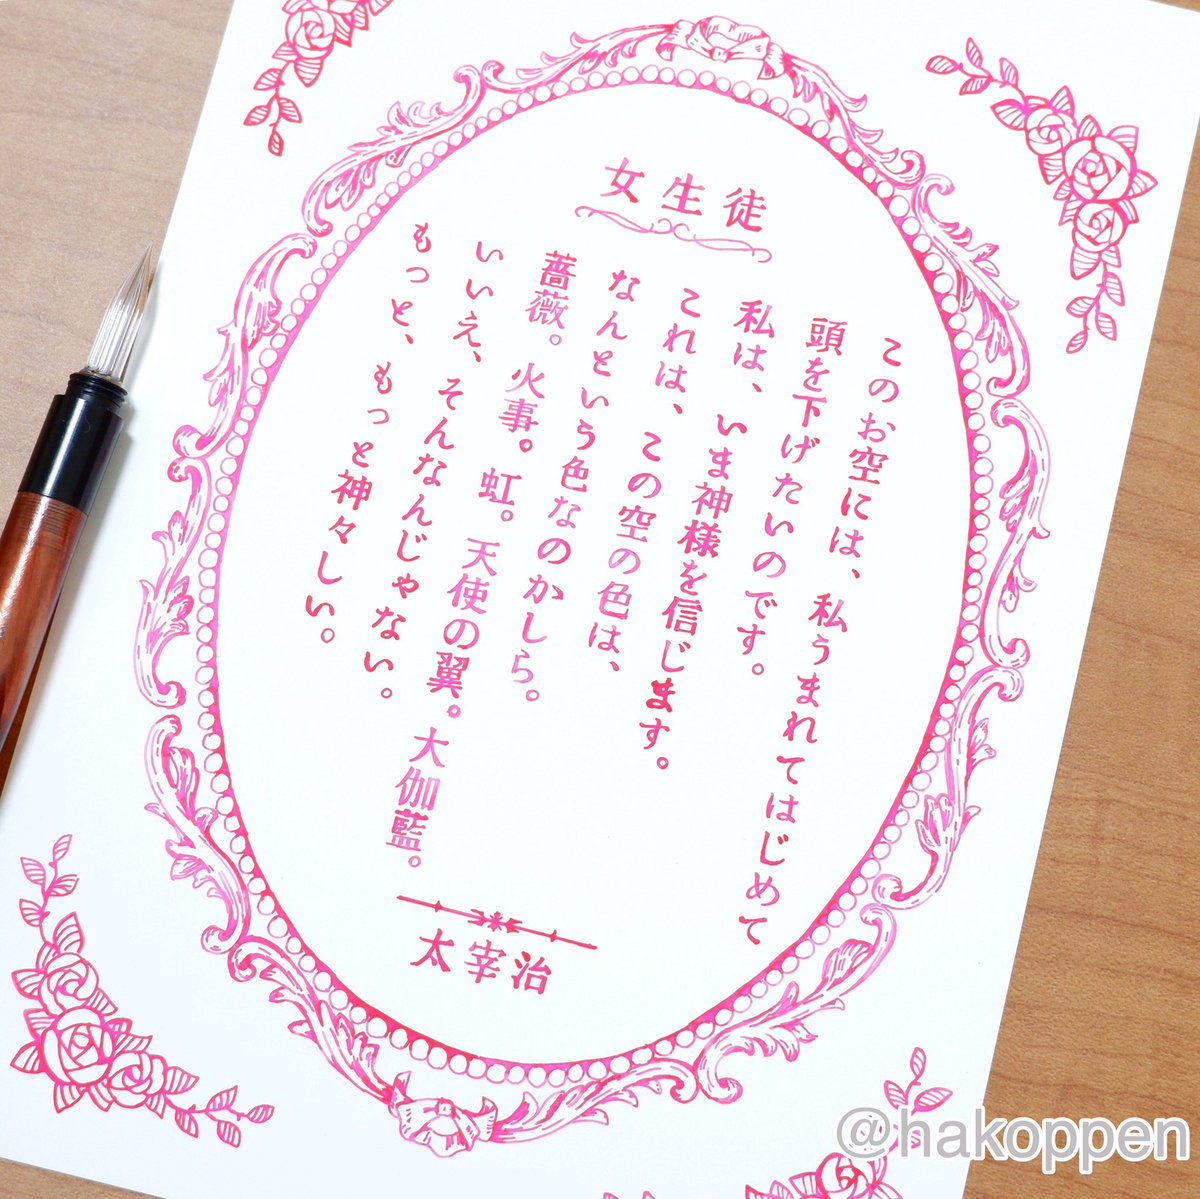 女生徒
このお空には、私うまれてはじめて
頭を下げたいのです。
私は、いま神様を信じます。
これは、この空の色は、
なんという色なのかしら。
薔薇。火事。虹。天使の翼。大伽藍。
いいえ、そんなんじゃない。
もっと、もっと神々しい。
太宰治
@hakoppen